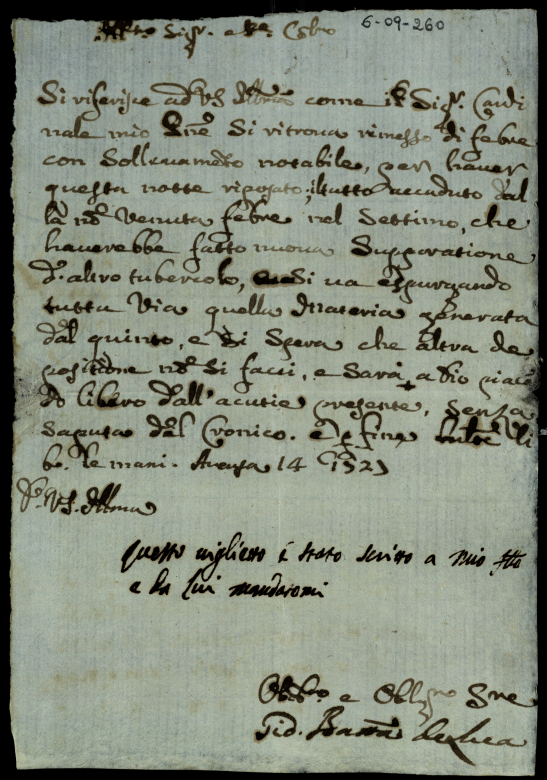 6-09-260
Sig.r e
Si riferisce ad VS Ill.ma come il Sig.r Cardi
nale mio Sig.re si ritrova rimesso di febre
con sollevamento notabile, per haver
questa notte riposato, il tutto accaduto dal
la nō venuta febre nel settimo, che
haverebbe fatto nuova suppuratione
d'altro tubercolo, si va espurgando
tutta via quella materia generata
dal quinto, e si spera che altra de
positione nō si facci, e sarà, a Dio piacē
do libero dall'acutie presente, senza
saputa del cronico. e p fine li
b. le mani. 14
VS. Ill.ma
Questo viglietto è stato scritto a mio
e da lui mandatomi
e Obblig.mo
Gio. Batta de Luca